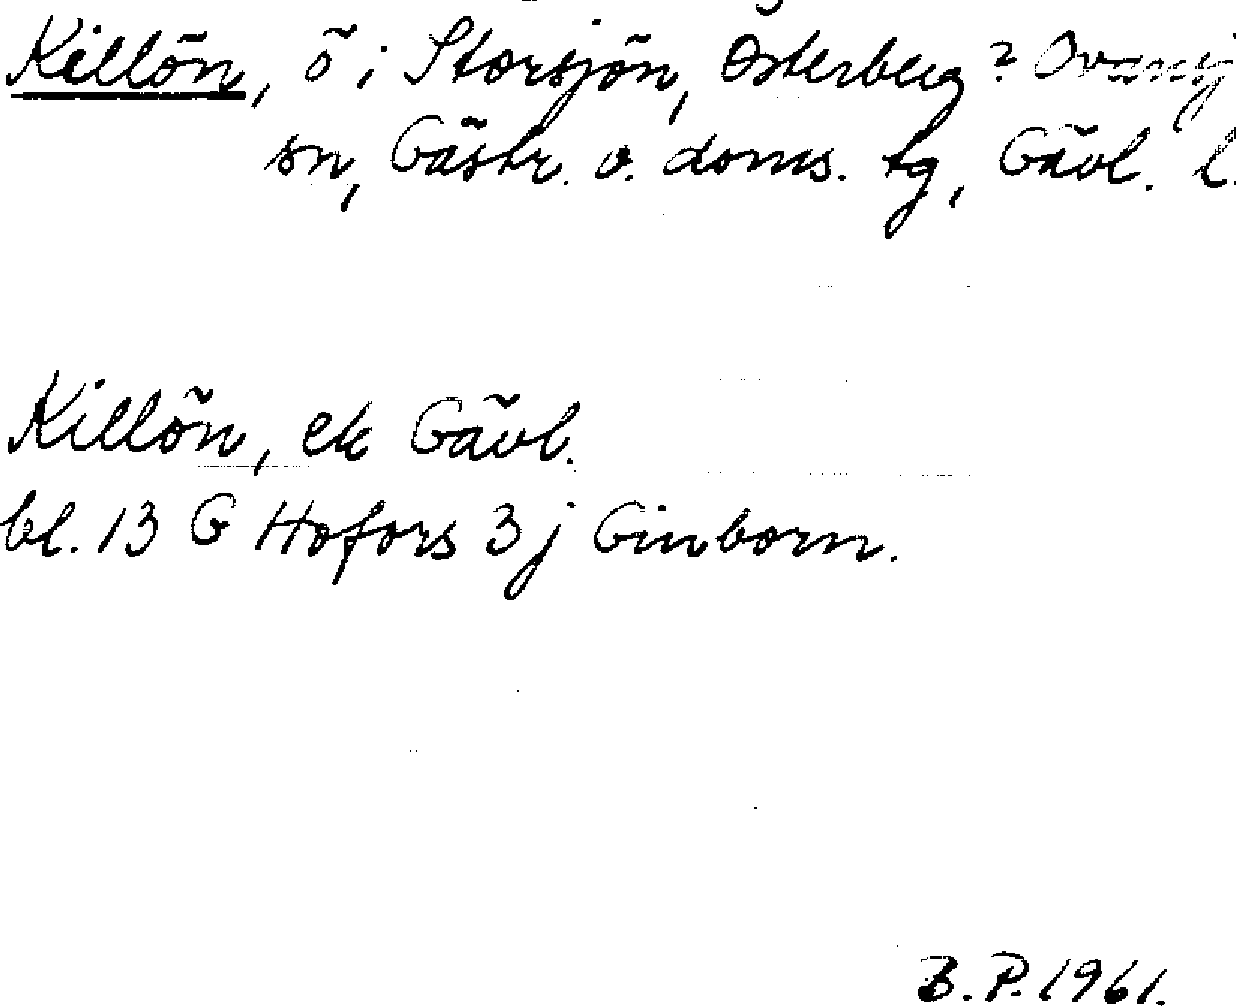 Killön, ö i Storsjön, Österberg? Ovansj
sn, Gästr. v. doms. tg, Gävl. l.
Killön, ek Gävl.
bl. 13 G Hofors 3j Ginborn.
B. P. 1961.